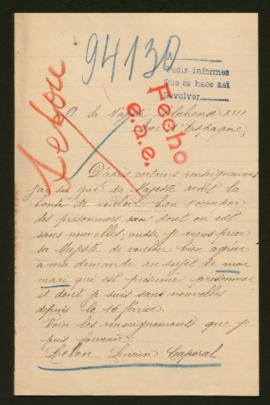 Lefou
94130
Pedir informes
que se hace así
devolver
Fecho
e.a.e.
A Sa Majesté Alphonse XIII
Roi d'Espagne,
D'après certains renseignements
j'ai su que sa Majesté avait la
bonté de vouloir bien s'occuper
des prisonniers dont on est
sans nouvelles; aussi, je viens prier
sa Majesté de vouloir bien agréer
à ma demande au sujet de mon
mari qui est présumé prisonnier
et dont je suis sans nouvelles
depuis le 16 février.
Voici les renseignements que je
puis fournir:
Lucien Caporal